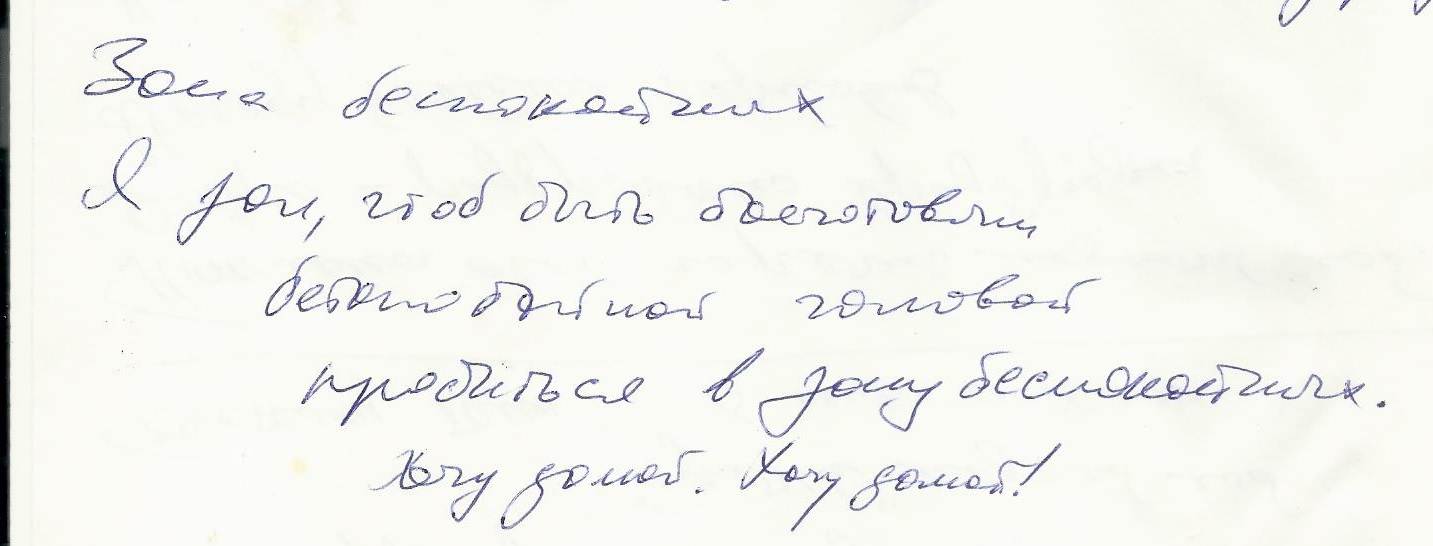 Зона беспокойных
Я зон, чтоб быть
головой
пробиться в зону беспокойных.
Хочу домой. Хочу домой!